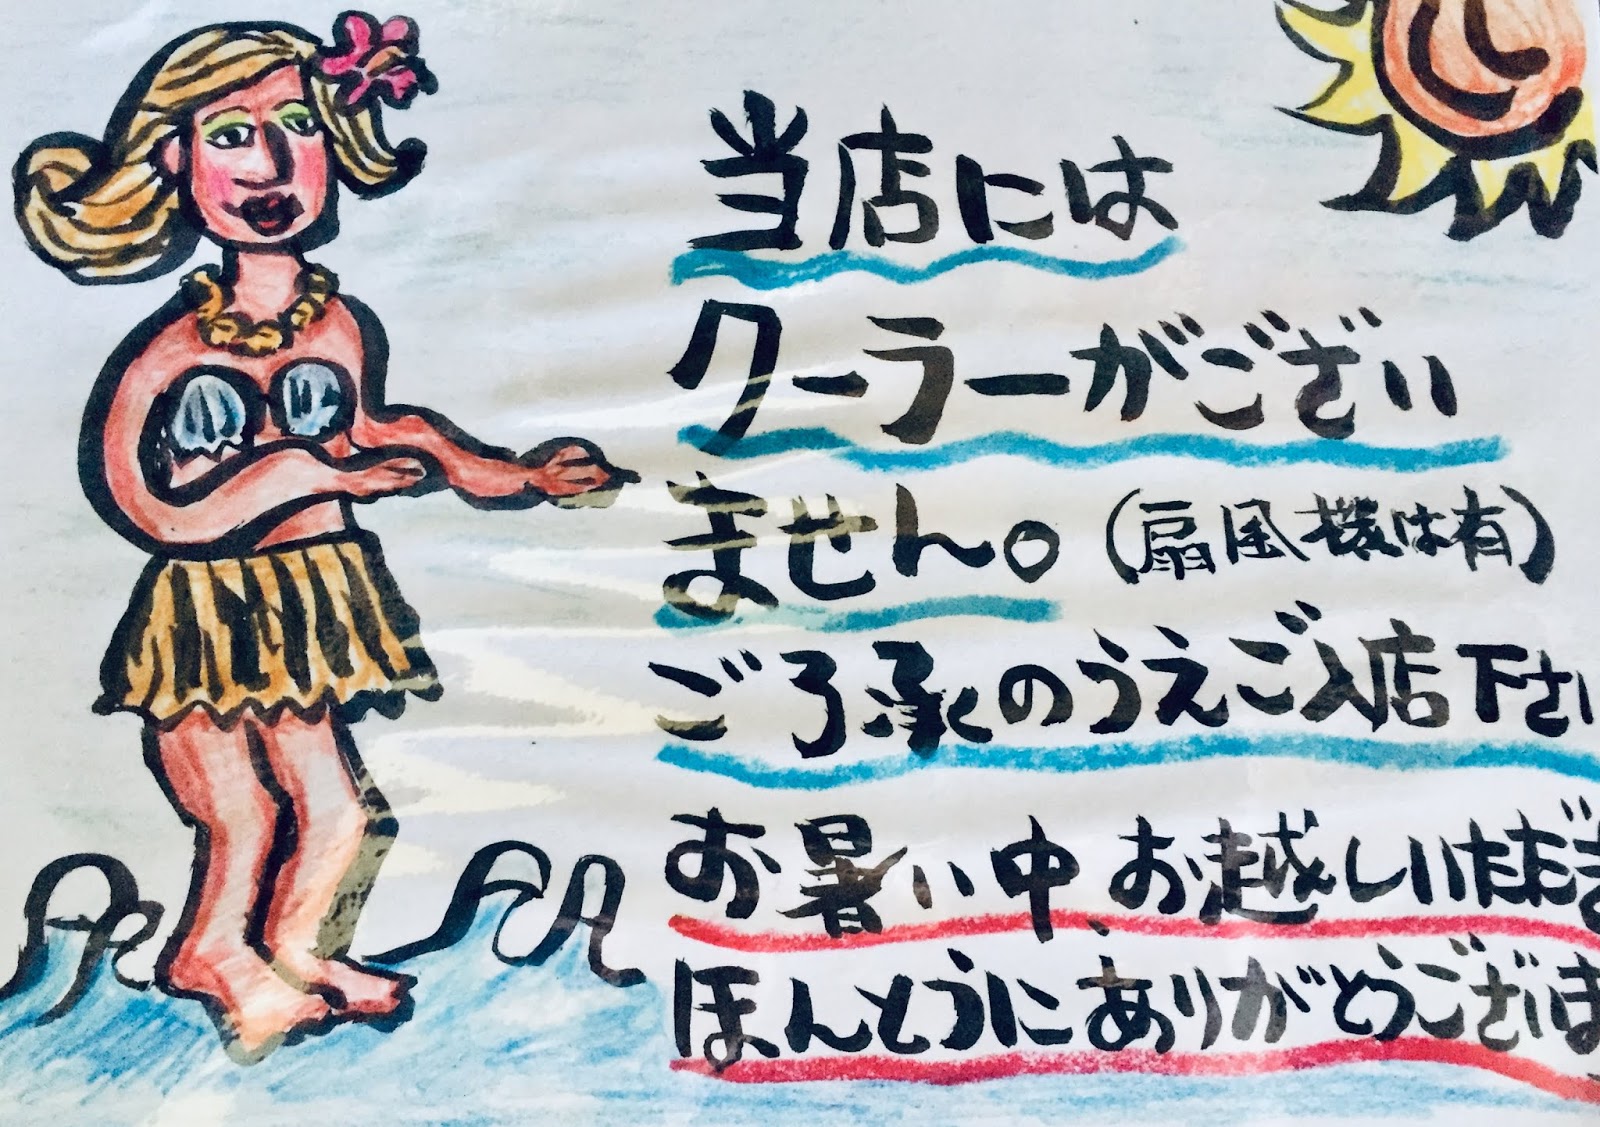 当店には
クーラーがござい
ません。(扇風機は有)
ご了承のうえご入店下さい
お暑い中、お越しいただき
ほんとうにありがとうございま